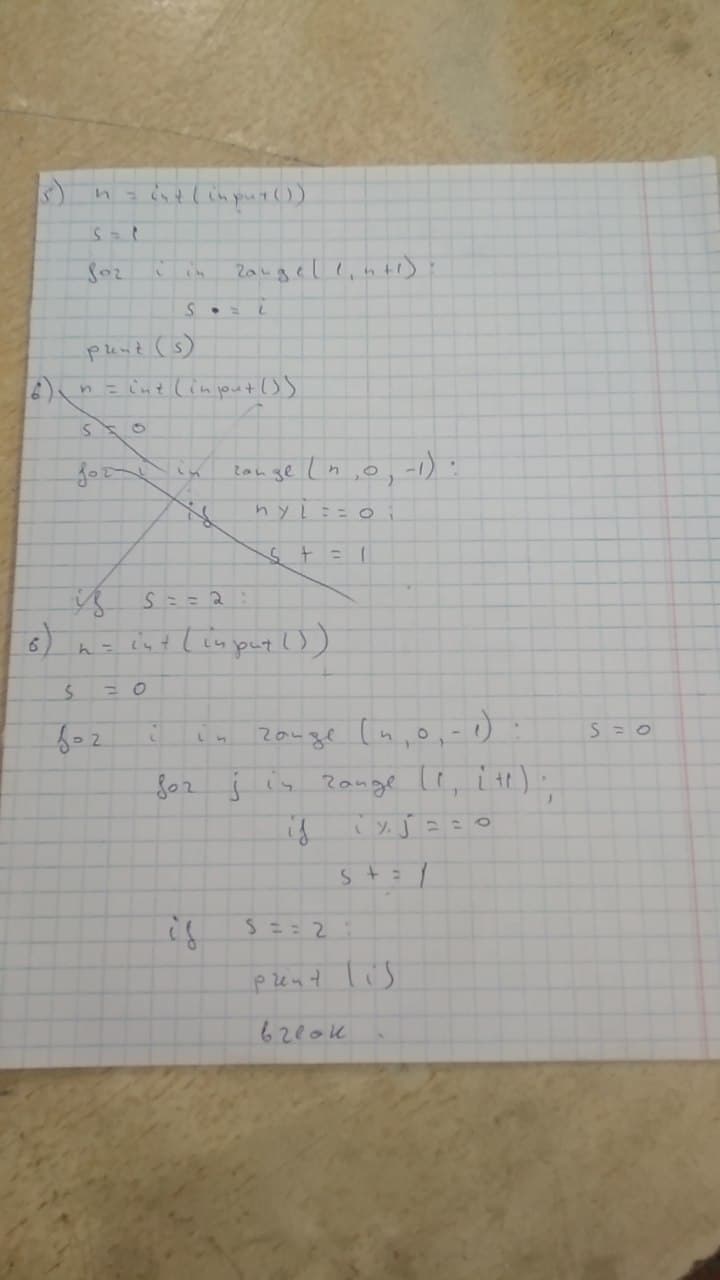 5) n = int(input())
s = 1
for i in range(1, n+1):
s • = i
print(s)
6) n = int(input())
s = 0
for i in range(n, 0, -1):
if n % i == 0:
s += 1
if s == 2:
6) n = int(input())
s = 0
for i in range(n, 0, -1): s = 0
for j in range(1, i+1);
if i % j == 0
s += 1
if s == 2:
print(i)
break.